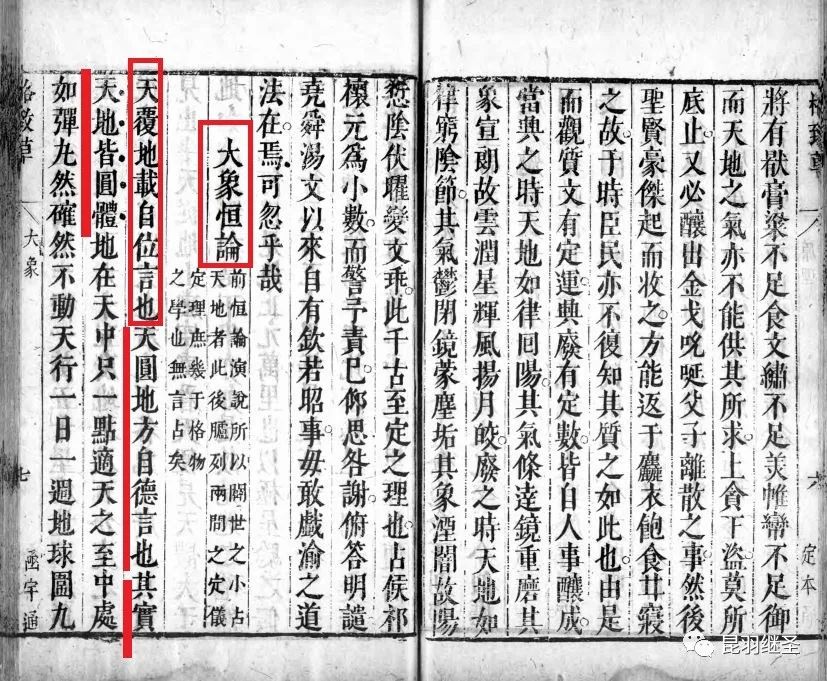 六
定本
將有猒膏粱不足食文繡不足美帷不足御
而天地之氣亦不能供其所求上貪下盜莫所
底止又必釀出金戈父子離散之事然後
聖賢豪傑起而收之方能返于麤衣飽食甘寢
之故于時臣民亦不復知其質之如此也由是
而觀質文有定運興廢有定數皆自人事釀成
當興之時天地如律回陽其氣條達鏡重磨其
象宣朗故雲潤星輝風揚月皎廢之時天地如
律窮陰節其氣鬱閉鏡蒙塵垢其象湮闇故陽
愆陰伏曜變文乖此千古至定之理也占候祁
禳元為小數而警予責已仰思咎謝俯答明譴
堯舜湯文以來自有欽若昭事毋敢戲渝之道
法在焉可忽乎哉
大象恒論
前恒論演說所以闢世之小占
天地者此後臚列兩間之定儀
定理庶幾于格物
之學也無言占矣
天覆地載自位言也天圓地方自德言也其實
天地皆圓體地在天中只一點適天之至中處
如彈丸然確然不動天行一日一週地球圖九
格致草
大象
七
函宇通
昆羽继圣